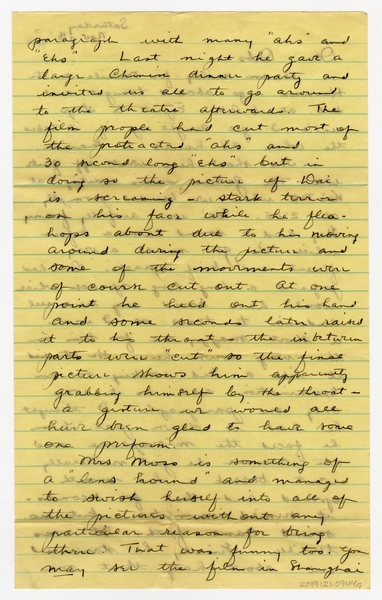 paragraph with many "ahs" and
"Ehs". Last night he gave a
large Chinese dinner party and
invited us all to go around
to the theatre afterwards. The
film people had cut most of
the protracted "ahs" and
30 second long "Ehs" but in
doing so the picture of Dai
is screaming - stark terror
on his face while he flea-
hops about due to his moving
around during the picture and
some of the movements were
of course cut out. At one
point he held out his hand
and some seconds later raised
it to his throat - the inbetween
parts were "cut" so the final
picture shows him apparently
grabbing himself by the throat -
a gesture we would all
have been glad to have some
one perform.
Mrs Moss is something of
a "lens hound" and managed
to swish herself into all of
the pictures without any
particular reason for being
there. That was funny too. You
may see the film in Shanghai